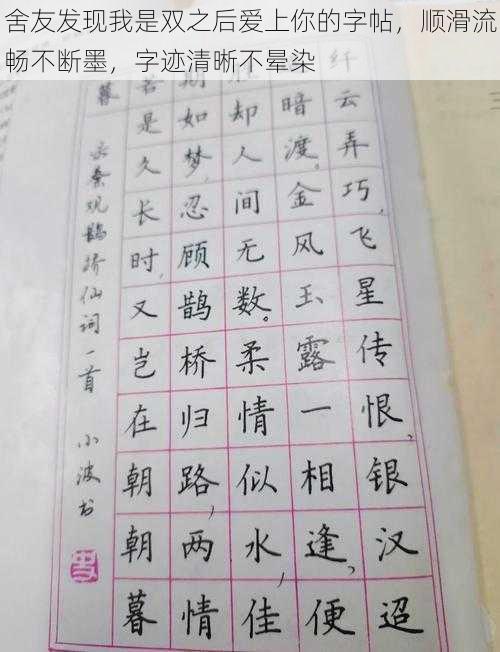 舍友发现我是双之后爱上你的字帖，顺滑流
畅不断墨，字迹清晰不晕染
纤云弄巧,飞星传恨,银汉迢
暗渡。金风玉露一相逢,便
却人间无数。柔情似水,佳
期如梦,忍顾鹊桥归路,两情
若是久长时,又岂在朝朝暮
暮
录秦观鹊桥仙词一首 小波书